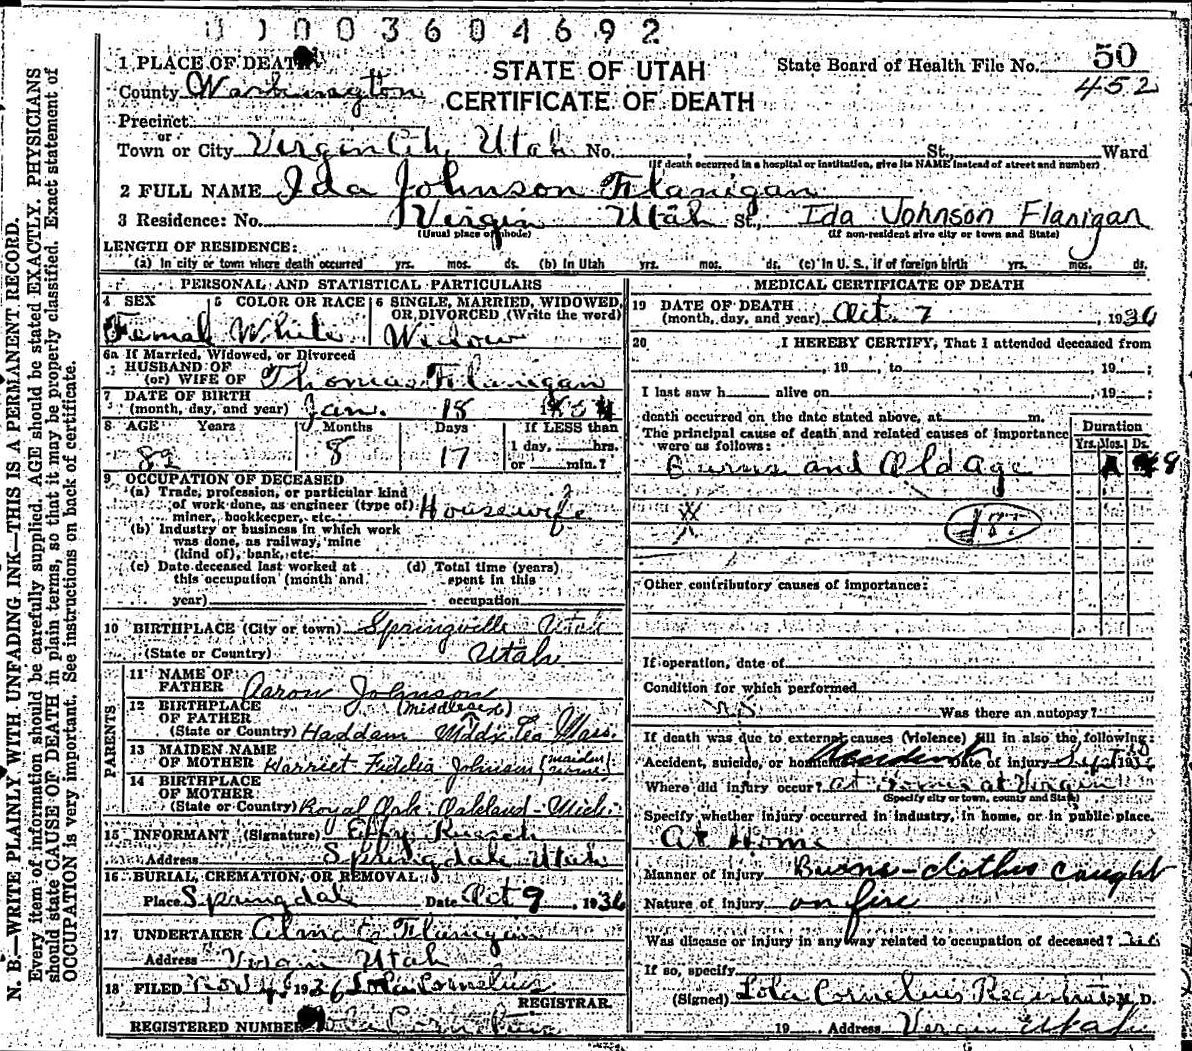 0 1 0 0 3 6 0 4 6 9 2
1 PLACE OF DEATH
STATE OF UTAH
State Board of Health File No. 50
County Washington
CERTIFICATE OF DEATH
452
Precinct
or
Town or City Virgin City Utah No. St., Ward
(If death occurred in a hospital or institution, give its NAME instead of street and number)
2 FULL NAME Ida Johnson Flanigan
3 Residence: No. Virgin Utah St., Ida Johnson Flanigan
(Usual place of abode) (If non-resident give city or town and State)
LENGTH OF RESIDENCE:
(a) In city or town where death occurred yrs. mos. ds. (b) In Utah yrs. mos. ds. (c) In U. S., if of foreign birth yrs. mos. ds.
PERSONAL AND STATISTICAL PARTICULARS
4 SEX 5 COLOR OR RACE 6 SINGLE, MARRIED, WIDOWED, OR DIVORCED (Write the word)
Femal White Widow
6a If Married, Widowed, or Divorced
HUSBAND OF
(or) WIFE OF Thomas Flanigan
7 DATE OF BIRTH
(month, day, and year) Jan. 18
8 AGE Years Months Days If LESS than
82 8 17 1 day, hrs.
or min.?
9 OCCUPATION OF DECEASED
(a) Trade, profession, or particular kind
of work done, as engineer (type of)
miner, bookkeeper, etc. Housewife
(b) Industry or business in which work
was done, as railway, mine
(kind of), bank, etc.
(c) Date deceased last worked at (d) Total time (years)
this occupation (month and spent in this
year) occupation
10 BIRTHPLACE (City or town) Springville Utah
(State or Country) Utah
PARENTS
11 NAME OF
FATHER Aaron Johnson
12 BIRTHPLACE (Middlesex)
OF FATHER
(State or Country) Haddam Mass.
13 MAIDEN NAME
OF MOTHER Harriet Fidelia Johnson (maiden name)
14 BIRTHPLACE
OF MOTHER
(State or Country) Royal Oak Oakland Mich.
15 INFORMANT (Signature)
Address Springdale Utah
16 BURIAL, CREMATION, OR REMOVAL
Place Springdale Date Oct 9, 1936
17 UNDERTAKER Flanigan
Address Virgin Utah
18 FILED Nov 4, 1936 Lola Cornelius
REGISTRAR.
REGISTERED NUMBER
MEDICAL CERTIFICATE OF DEATH
19 DATE OF DEATH
(month, day, and year) Oct. 7, 1936
20 I HEREBY CERTIFY, That I attended deceased from
, 19 , to , 19 ;
I last saw h alive on , 19 ;
death occurred on the date stated above, at m.
The principal cause of death and related causes of importance
were as follows:
Duration
Yrs. Mos. Ds.
Burns and Old Age
Other contributory causes of importance:
If operation, date of
Condition for which performed
Was there an autopsy?
If death was due to external causes (Violence) fill in also the following:
Accident, suicide, or homicide Accident Date of injury Sept 1936
Where did injury occur? at home at Virgin
(Specify city or town, county and State)
Specify whether injury occurred in industry, in home, or in public place.
At Home
Manner of injury Burns - clothes caught
Nature of injury on fire
Was disease or injury in any way related to occupation of deceased? no
If so, specify
(Signed) Lola Cornelius Registrar, M. D.
19 Address Virgin Utah
N. B.—WRITE PLAINLY WITH UNFADING INK—THIS IS A PERMANENT RECORD.
Every item of information should be carefully supplied. AGE should be stated EXACTLY. PHYSICIANS
should state CAUSE OF DEATH in plain terms, so that it may be properly classified. Exact statement of
OCCUPATION is very important. See instructions on back of certificate.